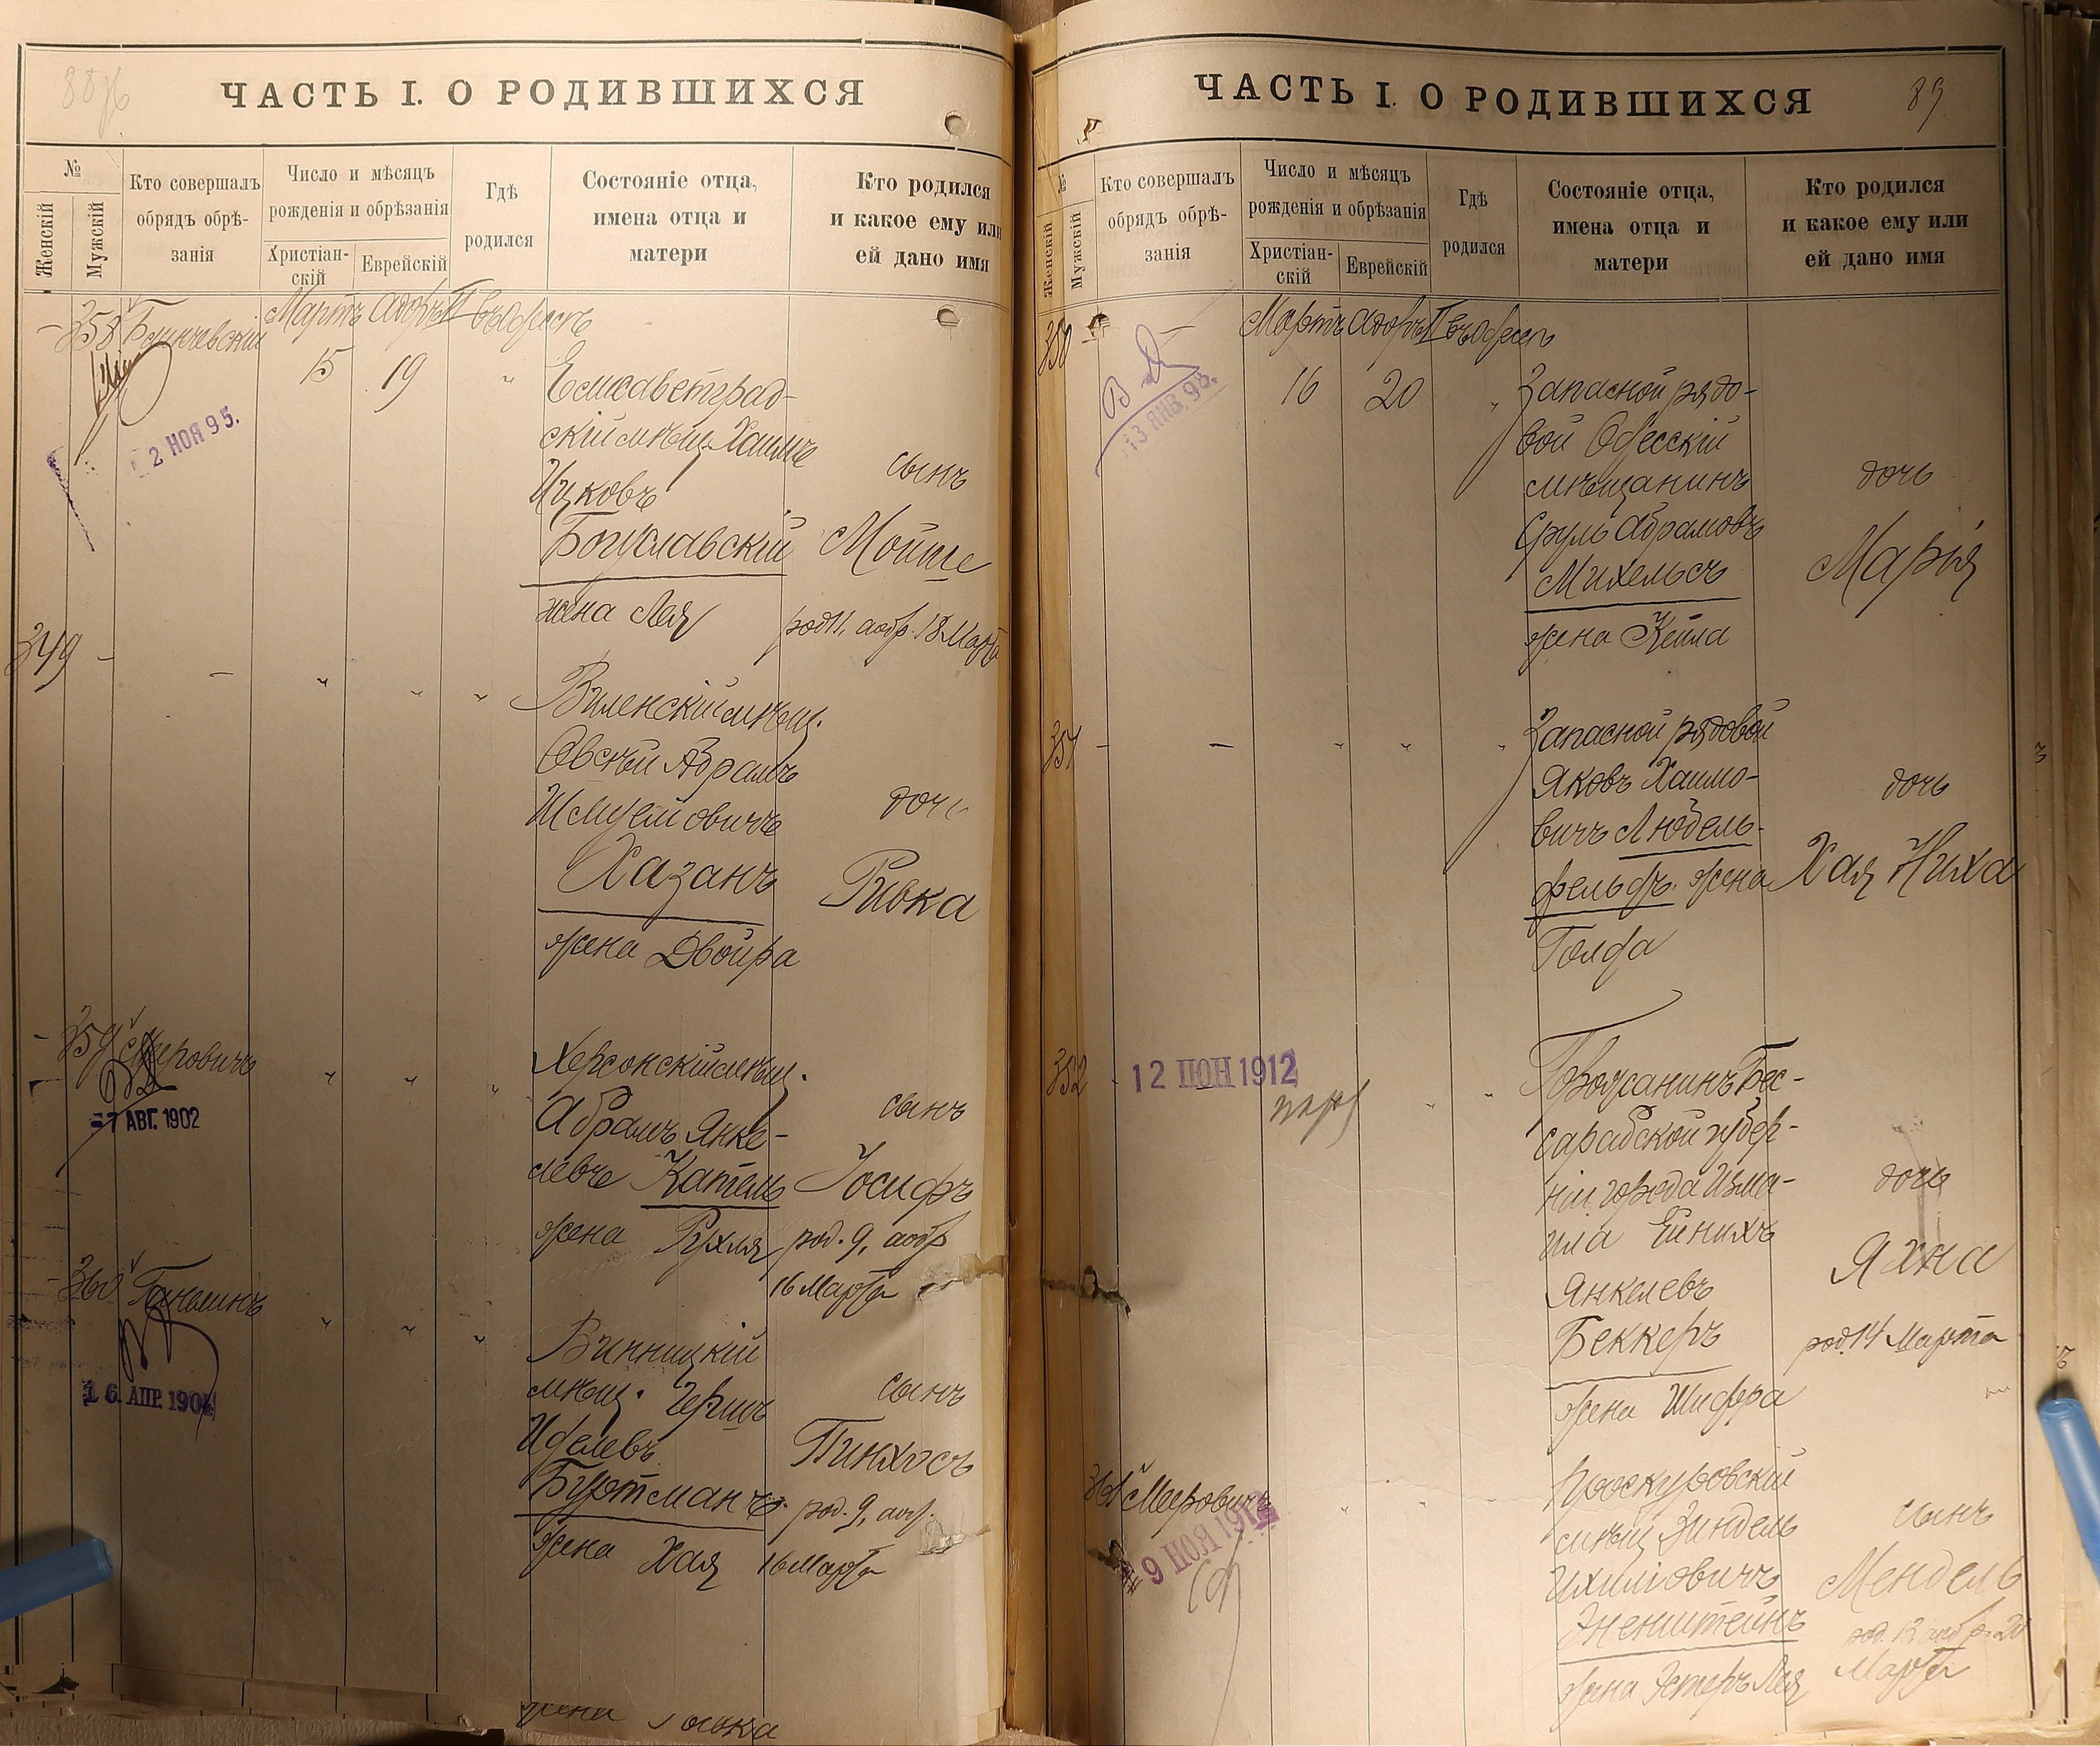 ЧАСТЬ I. О РОДИВШИХСЯ
№
Женскій
Мужскій
Кто совершалъ
обрядъ обрѣ-
занія
Число и мѣсяцъ
рожденія и обрѣзанія
Христіан-
скій
Еврейскій
Гдѣ
родился
Состояніе отца,
имена отца и
матери
Кто родился
и какое ему или
ей дано имя
358
Мартъ Адаръ II въ Одессѣ
15 19 "
Елисаветград-
скій мѣщ. Хаимъ
Ицковъ
Богуславскій
жена Лея
сынъ
Мойше
род 11, а обр. 18 Марта
2 НОЯ 95.
349 - - " " "
Виленскій мѣщ.
Овсѣй Абрамъ
Шмулiовичъ
Хазанъ
жена Двойра
дочь
Ривка
- 359 Меровичъ " " "
7 АВГ. 1902
Херсонскій мѣщ.
Абрамъ Янке-
левъ Катель
жена Рухля
сынъ
Іосифъ
род. 9, а обр
16 Марта
- 360 " " "
16. АПР. 1904
Винницкій
мѣщ. Гершъ
Иделевъ
Буртманъ
жена Хая
сынъ
Пинхосъ
род. 9, а об.
16 Марта
жена
ЧАСТЬ I. О РОДИВШИХСЯ
89
№
Женскій
Мужскій
Кто совершалъ
обрядъ обрѣ-
занія
Число и мѣсяцъ
рожденія и обрѣзанія
Христіан-
скій
Еврейскій
Гдѣ
родился
Состояніе отца,
имена отца и
матери
Кто родился
и какое ему или
ей дано имя
350 - -
Мартъ Адаръ II въ Одессѣ
16 20 "
13 ЯНВ. 98.
Запасной рядо-
вой Одесскій
мѣщанинъ
Сруль Абрамовъ
Михельсъ
жена Кейла
дочь
Марія
351 - - " " "
Запасной рядовой
Яковъ Хаимо-
вичъ Людель-
фельдъ. жена
Голда
дочь
Хая Ниха
352 - " "
12 ІЮН 1912
Горожанинъ Бес-
сарабской губер-
ніи города Изма-
ила Ейнихъ
Янкелевъ
Беккеръ
жена Шифра
дочь
Яхна
род. 14 Марта
361 Меровичъ " " "
9 НОЯ 191
Проскуровскій
мѣщ Зиндель
Ихиліовичъ
жена Эстеръ Лея
сынъ
Мендель
род. 13 а обр. 20
Марта